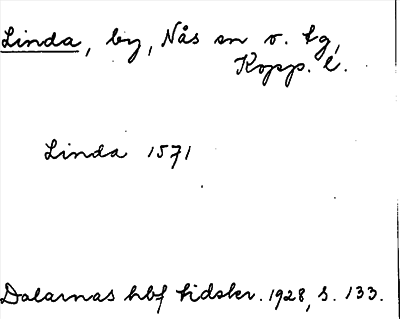 Linda, by, Nås sn v. tg,
Kopp. l.
Linda 1571
Dalarnas hbf tidskr. 1928, s. 133.